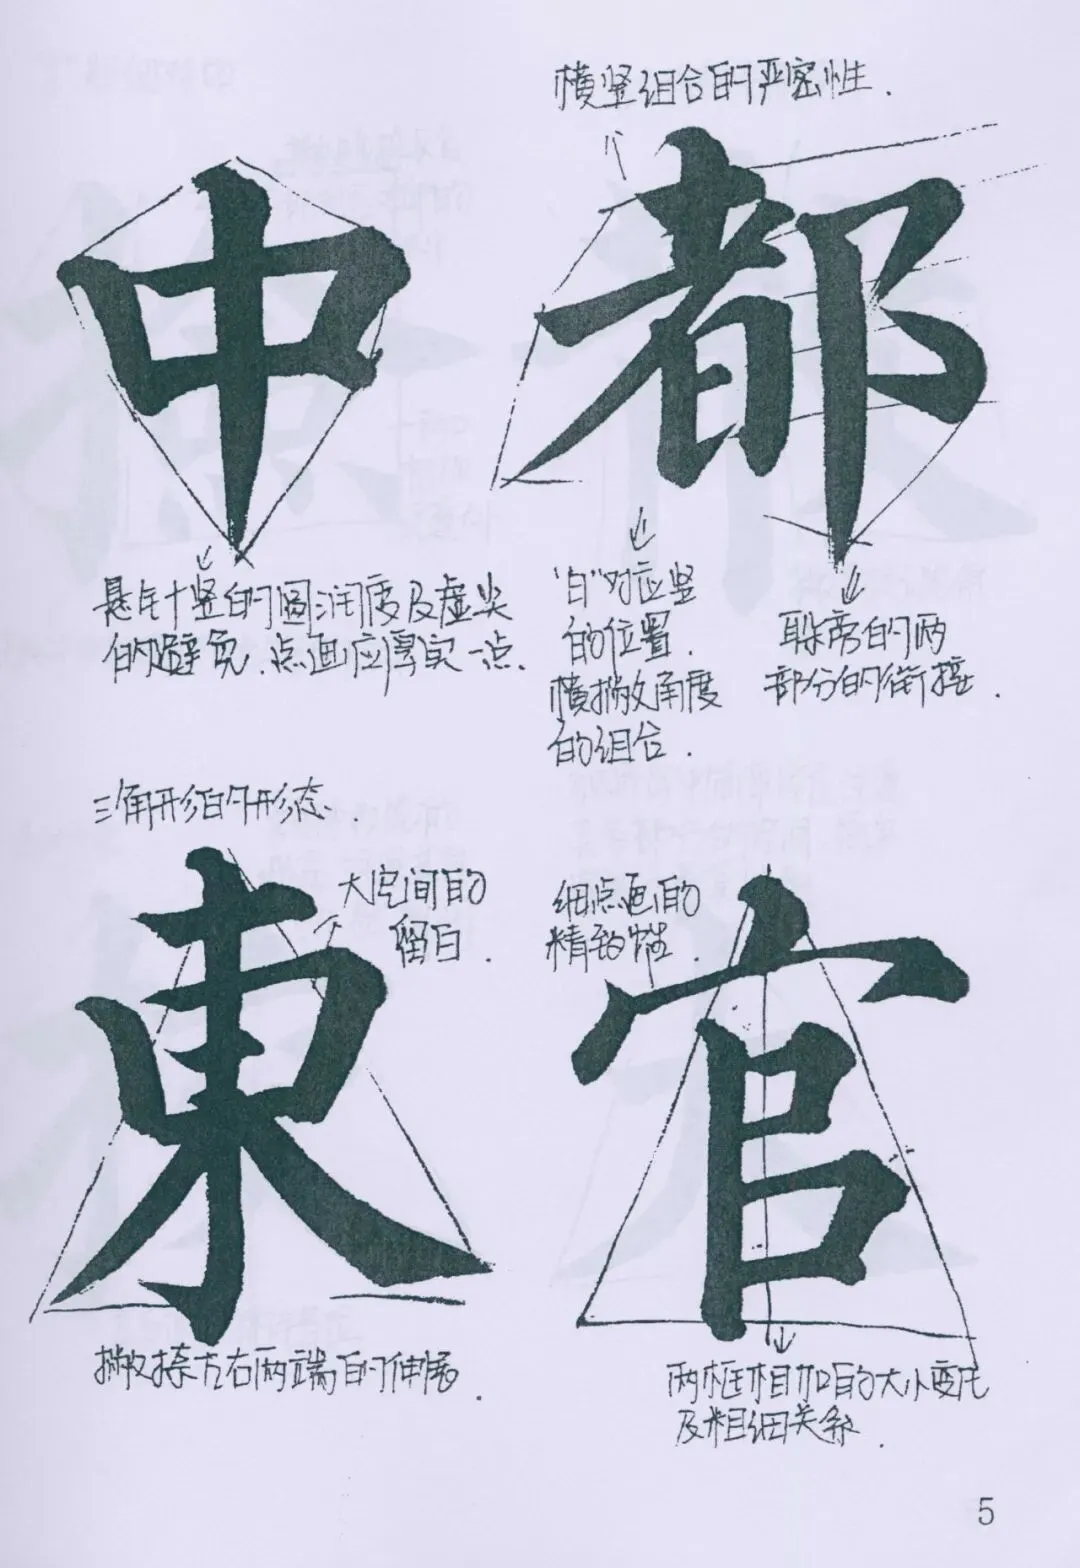 横竖组合的严密性.
中
都
悬针竖的圆润度及虚尖
的避免.点画应厚实一点.
"白"对应竖
的位置.
横撇角度
的组合.
耶旁的两
部分的衔接.
三角形的形态.
東
大空间的
留白.
细点画的
精致性.
官
撇捺左右两端的伸展.
两框相加的大小变化
及粗细关系.
5